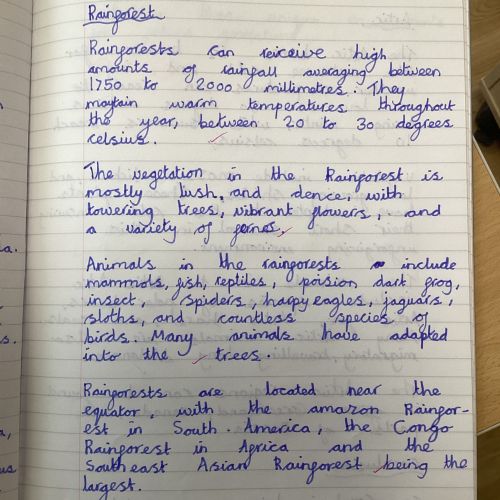 Rainforest
Rainforests can reiceive high
amounts of rainfall averaging between
1750 to 2000 millimetres. They
maytain warm temperatures throughout
the year, between 20 to 30 degrees
celsius.
The vegetation in the Rainforest is
mostly lush, and dence, with
towering trees, vibrant flowers, and
a variety of ferns.
Animals in the rainforests include
mammals, fish, reptiles, poision dart frog,
insect, spiders, harpy eagles, jaguars,
sloths, and countless species of
birds. Many animals have adapted
into the trees.
Rainforests are located near the
equator, with the amazon Rainfor-
est in South America, the Congo
Rainforest in Africa and the
South east Asian Rainforest being the
largest.